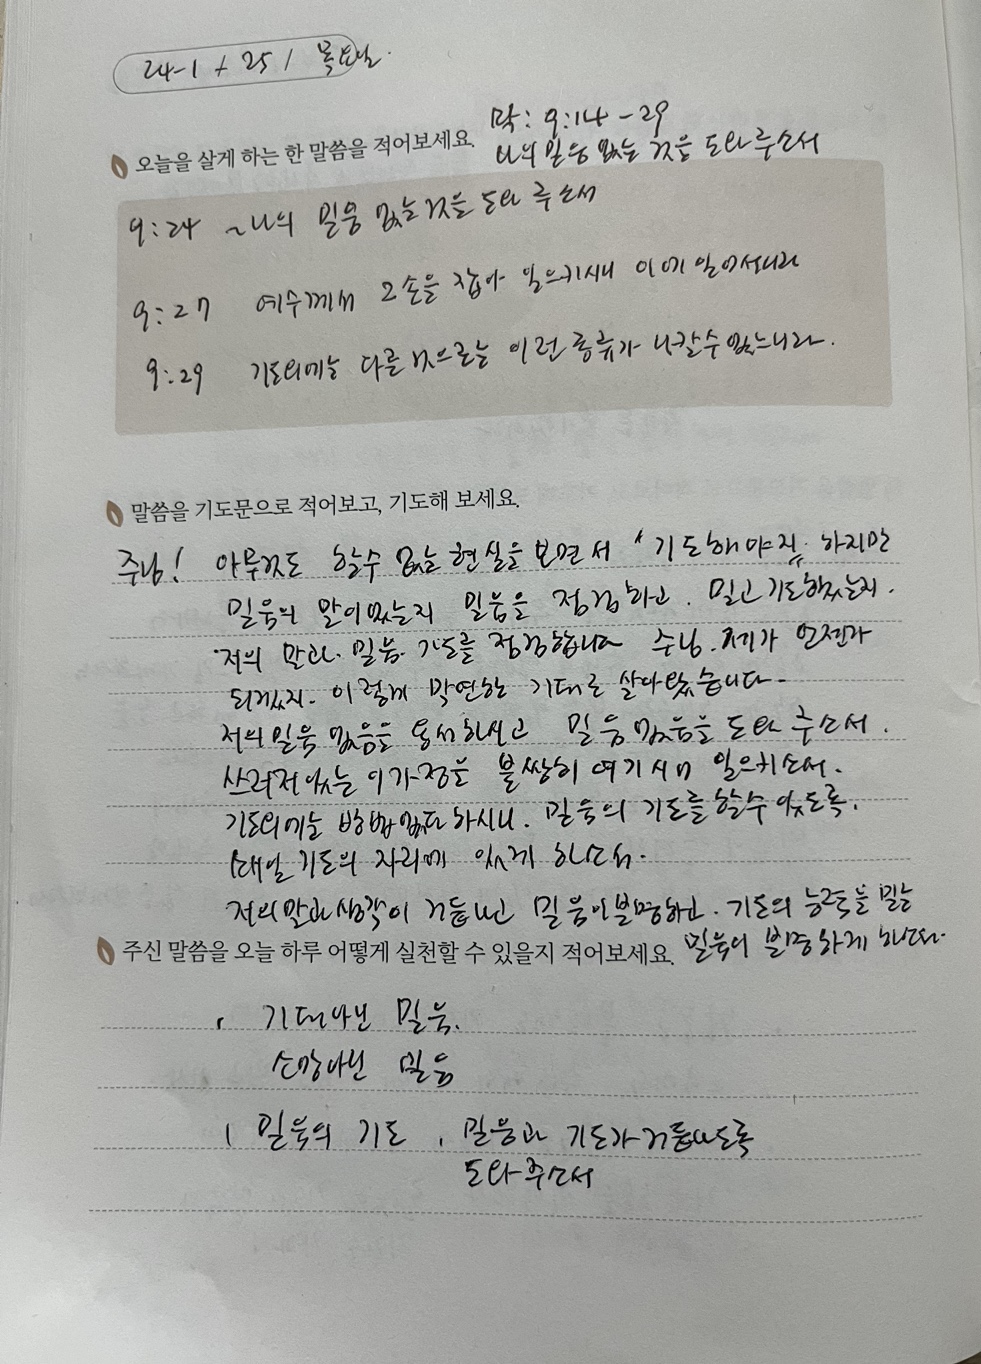 24-1 / 25 / 목요일.
막: 9:14-29
오늘을 살게 하는 한 말씀을 적어보세요. 나의 믿음 없는 것을 도와 주소서
9:24 ~나의 믿음 없는 것을 도와 주소서
9:27 예수께서 그 손을 잡아 일으키시니 이에 일어서니라
9:29 기도외에는 다른 것으로는 이런 종류가 나갈 수 없느니라.
말씀을 기도문으로 적어보고, 기도해 보세요.
주님! 아무것도 할수 없는 현실을 보면서 "기도해야지" 하지만
믿음의 말이었는지 믿음을 점검하고. 믿고 기도했는지.
저의 말과. 믿음. 기도를 점검합니다 주님. 제가 언젠가
되겠지. 이렇게 막연한 기대로 살아왔습니다.
저의 믿음 없음을 용서하시고 믿음 없음을 도와 주소서.
쓰러져 있는 이 가정을 불쌍히 여기시어 일으키소서.
기도외에는 방법없다 하시니. 믿음의 기도를 할수 있도록.
매일 기도의 자리에 있게 하소서.
저의 말과 생각이 거듭나고 믿음이 분명하고. 기도의 능력을 믿는
주신 말씀을 오늘 하루 어떻게 실천할 수 있을지 적어보세요. 믿음이 분명하게 하소서.
, 기대아닌 믿음.
소망아닌 믿음
( 믿음의 기도 , 믿음과 기도가 거듭나도록
도와 주소서